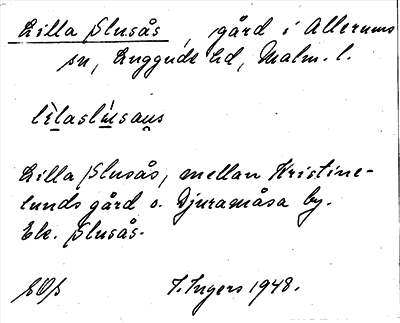 Lilla Slusås, gård i Allerums
sn, Luggude hd, Malm. l.
lìlaslúsaus
Lilla Slusås, mellan Kristine-
lunds gård o. Djuramåsa by.
Ek. Slusås.
I. Ingers 1948.